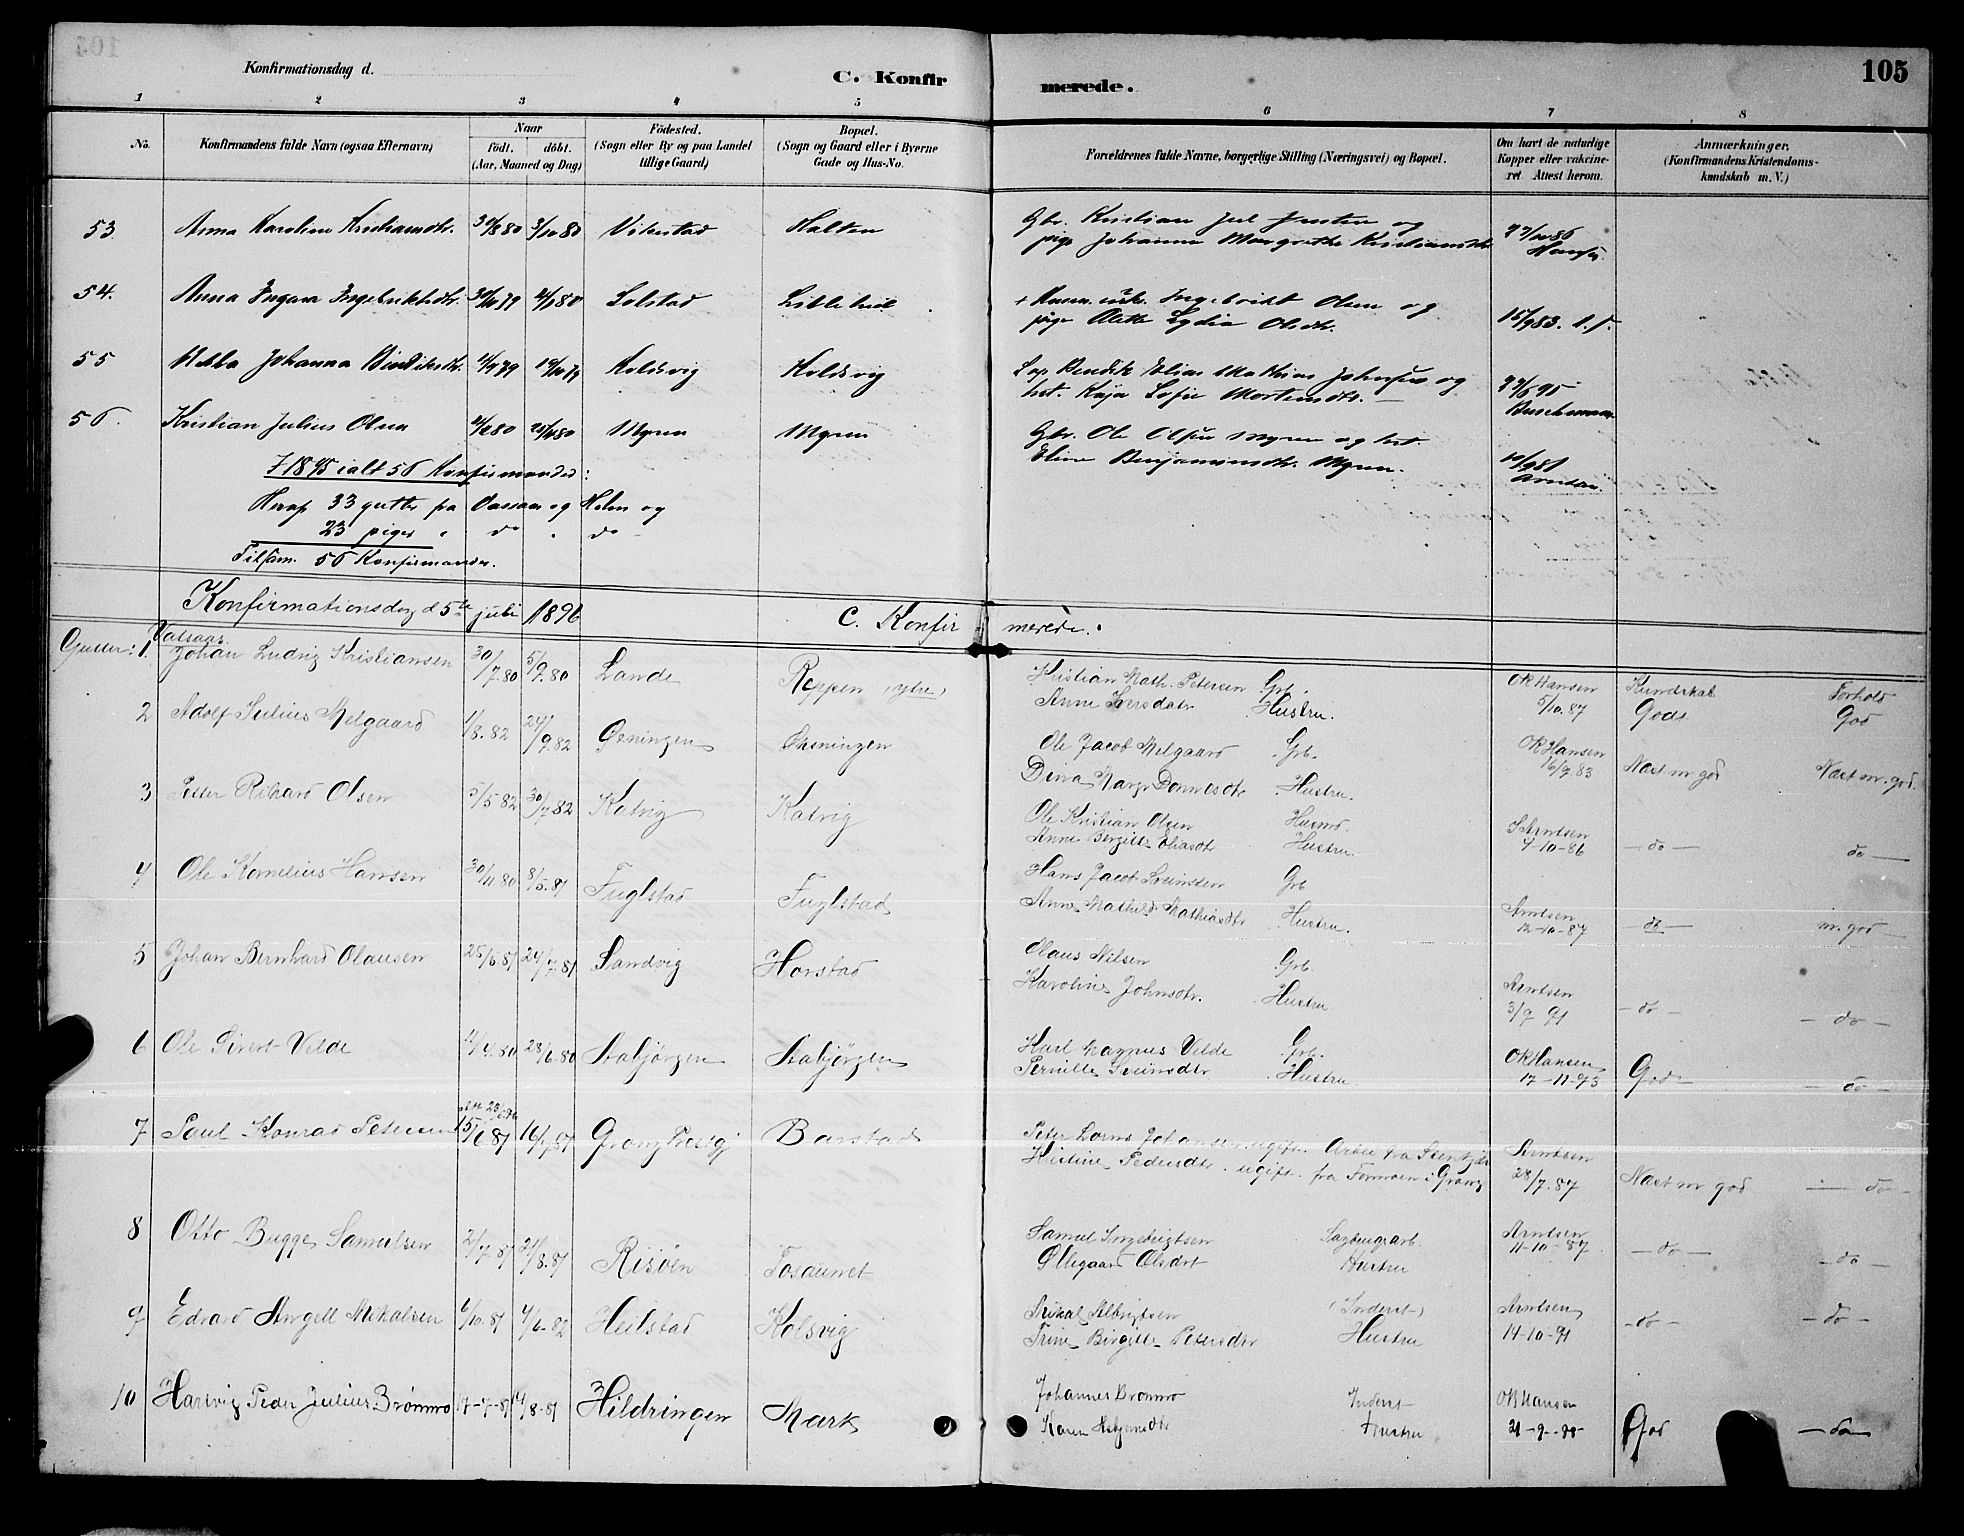 105
Konfirmationsdag d.
C. Konfirmerede.
1 2 3 4 5 6 7 8
No.
Konfirmandens fulde Navn (ogsaa Efternavn)
Naar
födt. döbt.
(Aar, Maaned og Dag)
Födested.
(Sogn eller By og paa Landet
tillige Gaard)
Bopæl.
(Sogn og Gaard eller i Byerne
Gade og Hus-No.
Forældrenes fulde Navne, borgerlige Stilling (Næringsvei) og Bopæl.
Om havt de naturlige
Kopper eller vakcine-
ret. Attest herom.
Anmærkninger.
(Konfirmandens Kristendoms-
kundskab m. V.)
53 Anna Karoline Kristiansdtr. 30/8 80 3/10 80 Vikestad Halten Gbr. Kristian Juel Jensen og
pige Johanna Margrethe Kristiansdtr 27/10 86
Hansen
54. Anna Ingara Ingebriktsdtr. 30/10 79 4/1 80 Solstad Lilleheil Ingebrikt Olsen og
pige Alette Lydia Olsdtr. 15/9 83.
55 Johanna Bendiksdtr. 19/10 79 Holdsvig Holdsvig Bendik Elias Mathias Johnsen og
hst. Kaja Sofie Mortensdtr. 27/6 95
Buschmann
56. Kristian Julius Olsen 4/2 80 25/4 80 Myren Myren Gbr. Ole Olsen Myren og hst.
Eline Benjaminsdtr. Myren. 10/9 81
Arntsen.
I 1895 ialt 56 Konfirmander:
Heraf 33 gutter fra Vassaas og Holm og
23 piger " do " do
Tilsam. 56 Konfirmander.
Konfirmationsdag d 5te juli 1896 C. Konfirmerede.
Vassaas.
Gutter: 1. Johan Ludvig Kristiansen 30/7.80 5/9.80 Lande Reppen (ytre) Kristian Math. Petersen Grb.
Anne Iversdatr Hustru. OR Hansen
5/10.87 Kundskab Forhold
Godt God
2 Adolf Julius Melgaard 1/8.82 24/9.82 Øxningen Øxningen Ole Jacob Melgaard Grb.
Dina Margr Donnesdtr Hustru. OR Hansen
16/9.83 Næst m god Næst m. god.
3 Petter Rikard Olsen 5/5 82 30/7 82 Kalvig Kalvig Ole Kristian Olsen Husmd.
Anne Bergitte Eliasdtr Hustru. S Arntsen
9-10-86 - do - do -
4 Ole Kornelius Hansen 30/11 80 8/5.81 Fuglstad Fuglstad Hans Jacob Grb
Anne Mathild. Mathiasdtr Hustru. Arntsen
12-10-87 - do - m. god -
5 Johan Bernhard Olausen 25/6.81 24/7.81 Sandvig Horstad Olaus Nilsen Grb.
Karoline Johnsdtr. Hustru Arntsen
3/9 91 - do - - do -
6 Ole Sivert Velde 11/4.80 28/6.80 Stabjörgen Stabjörgen Karl Magnus Velde Grb.
Pernille Hustru. OR Hansen
17-11-93 God - do -
7 Paul Konrad Petersen 15/6 81 16/7 81 Grong Prestgj Barstad Peter Lorns Johansen ugift. Arbeid fra Stenkjær
Kristine Pedersdtr. ugift. fra Formoen i Grong Arntsen
28/7.87 Næst m god - do -
8 Otto Bugge Samuelsen 2/7.81 21/8.81 Risöen Tosdunet Samuel Ingebrigtsen Sagbrugsarb.
Ollegaard Olsdtr Hustru Arntsen
11-10-87 - do - - do -
9 Edvard Angell Mikalsen 6/10.81 4/6.82 Heilstad Kolsvig Mikal Albrigtsen (Inderst)
Trine Birgitte Petersdtr Hustru Arntsen
14-10-91 - do - - do -
10 Hartvig Peder Julius Brønmo 17-7-81 14/8-81 Hildringen Mark Johannes Brønmo Inderst
Karen Hustru OR Hansen
21-9- God - do -